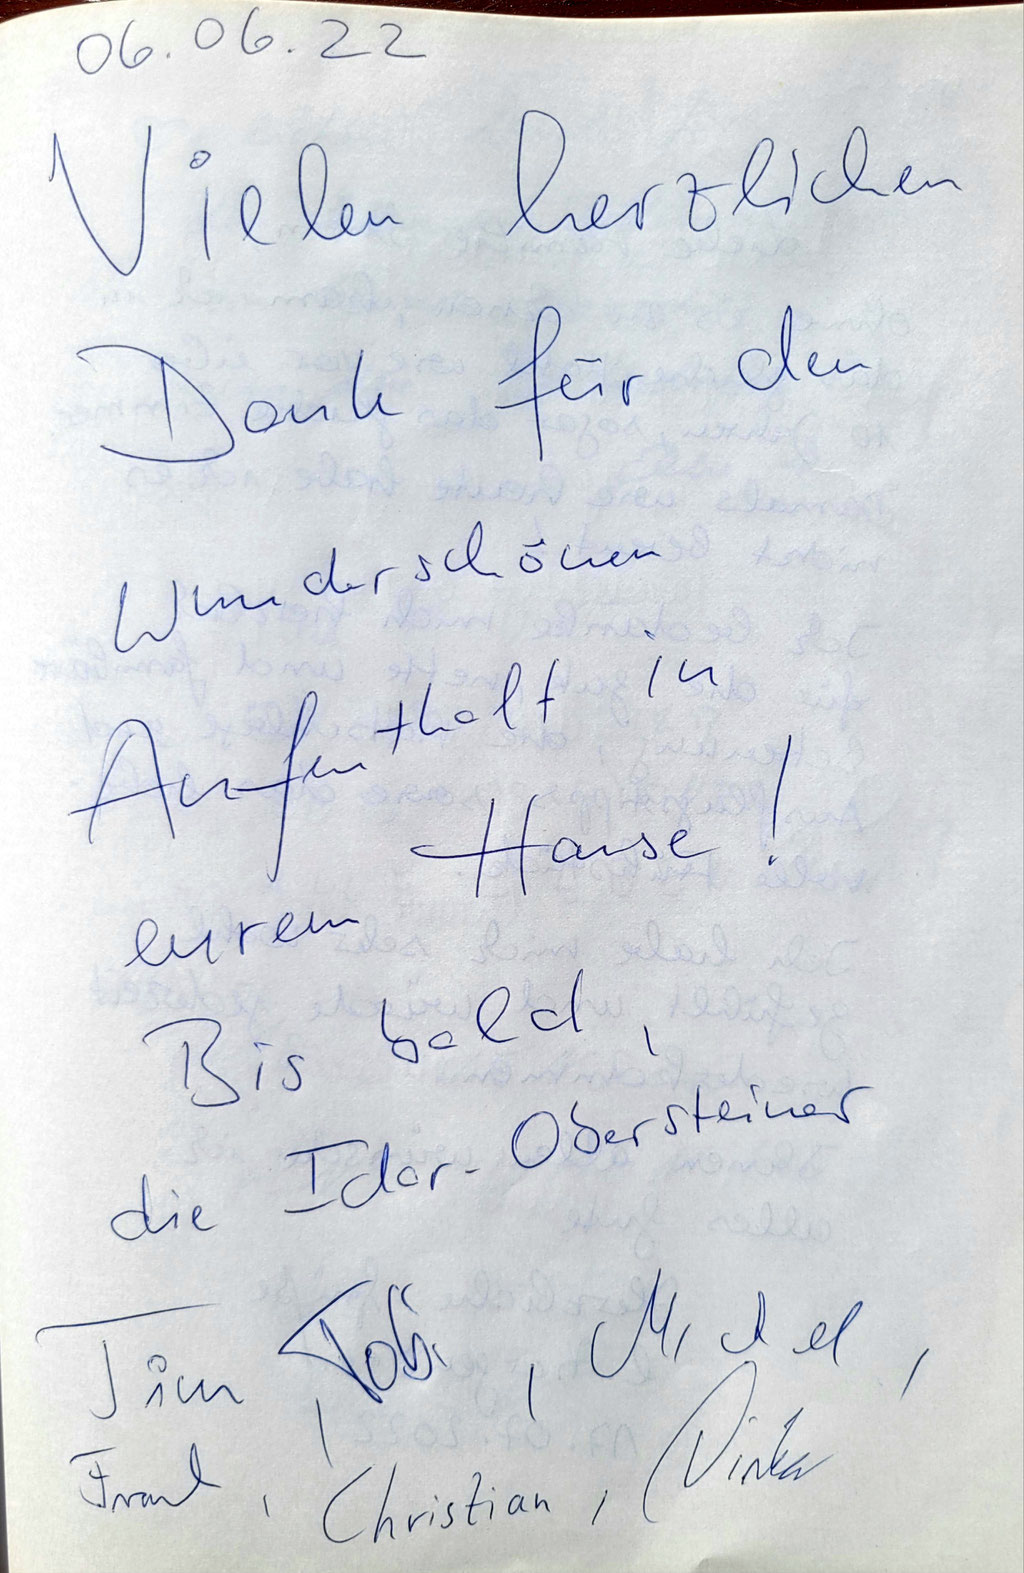 06.06.22
Vielen herzlichen
Dank für den
wunderschönen
Aufenthalt in
eurem Hause!
Bis bald,
die Idar-Obersteiner
Tim, Tobi, Michel,
Frank, Christian,